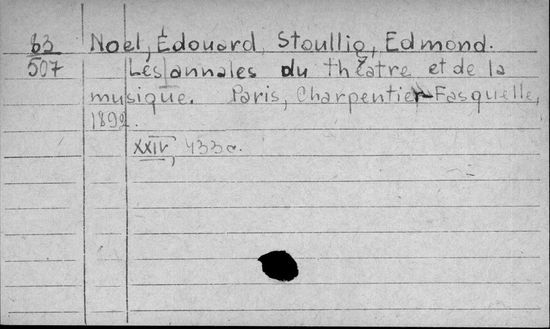 83 Noel, Édouard, Stoullig, Edmond.
507 Les annales du théatre et de la
musique. Paris, Charpentier-Fasquelle,
1892.
XXIV, 433 c.